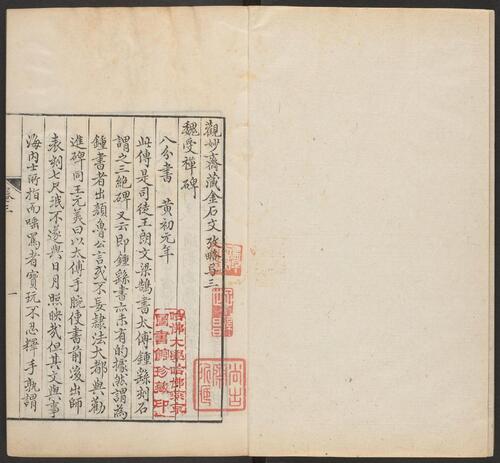 觀妙齋藏金石文攷略卷三
魏受禪碑
八分書　黃初元年
此傳是司徒王朗文梁鵠書太傅鍾繇刻石
謂之三絕碑又云即鍾繇書亦未有的據然謂為
鍾書者出顏魯公言或不妄隸法大都與勸
進碑同王元美曰以太傅手腕使書前後出師
表刻七尺珉不遂與日月照映哉但其文與事
海內士所指而唾罵者寶玩不忍釋手孰謂
卷三
一
哈佛大學哈佛燕京
圖書館珍藏印